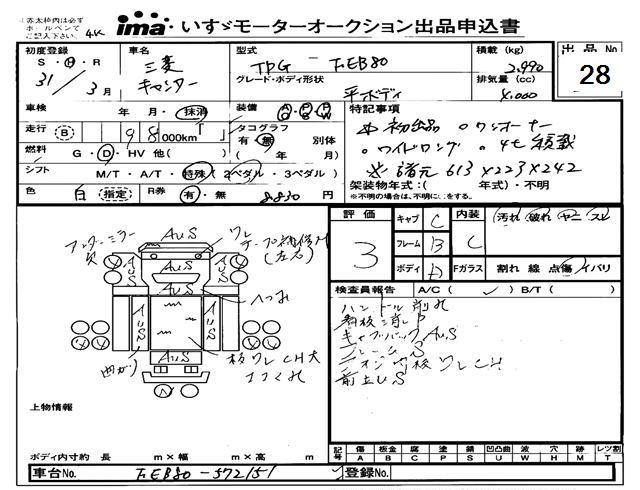 ※赤太枠内は必ず
ボールペンで
ご記入下さい。 4K
ima いすゞモーターオークション出品申込書
初度登録 車名 型式 積載 (kg) 出品 No
S・H・R 三菱 TPG - FEB80 2.990 28
31/3月 キャンター グレード・ボディ形状 平ボディ 排気量 (cc) 4.000
車検 年 月・抹消 装備 A/C P/S P/W 特記事項
走行 (B) 98,000km「 」 タコグラフ 有・無 別体 ※初出品 ○ワンオーナー
燃料 G・D・HV 他( ) ( 年 月) ○ワイドロング ○4t積載
シフト M/T・A/T・特殊(2ペダル・3ペダル) ※諸元 613×223×242
色 白 (指定) R券 有・無 8830 円 架装物年式:( 年式)・不明
※不明の場合は、不明に○をする。
評価 キャブ C 内装 汚れ 破れ ヤニ スレ
3 フレーム B C
ボディ D Fガラス 割れ 線 点傷 イバリ
検査員報告 A/C( ✓ ) B/T( )
アンダーミラー欠 AUS ワレ テープ補修片 (左右)
AUS AUS
へこみ
AUS AUS
AUS
曲がり 板ワレCH大
ハンドル削れ
看板消し
キャブバックAUS
フレームS
板ワレCH
上物情報
ボディ内寸約 長 m×幅 m×高 m
記号 傷 板金 腐 塗 錆 凹凸曲 波 穴 跡 レツ割
A B C P S U W H M T
車台No. FEB80-572151 登録No.